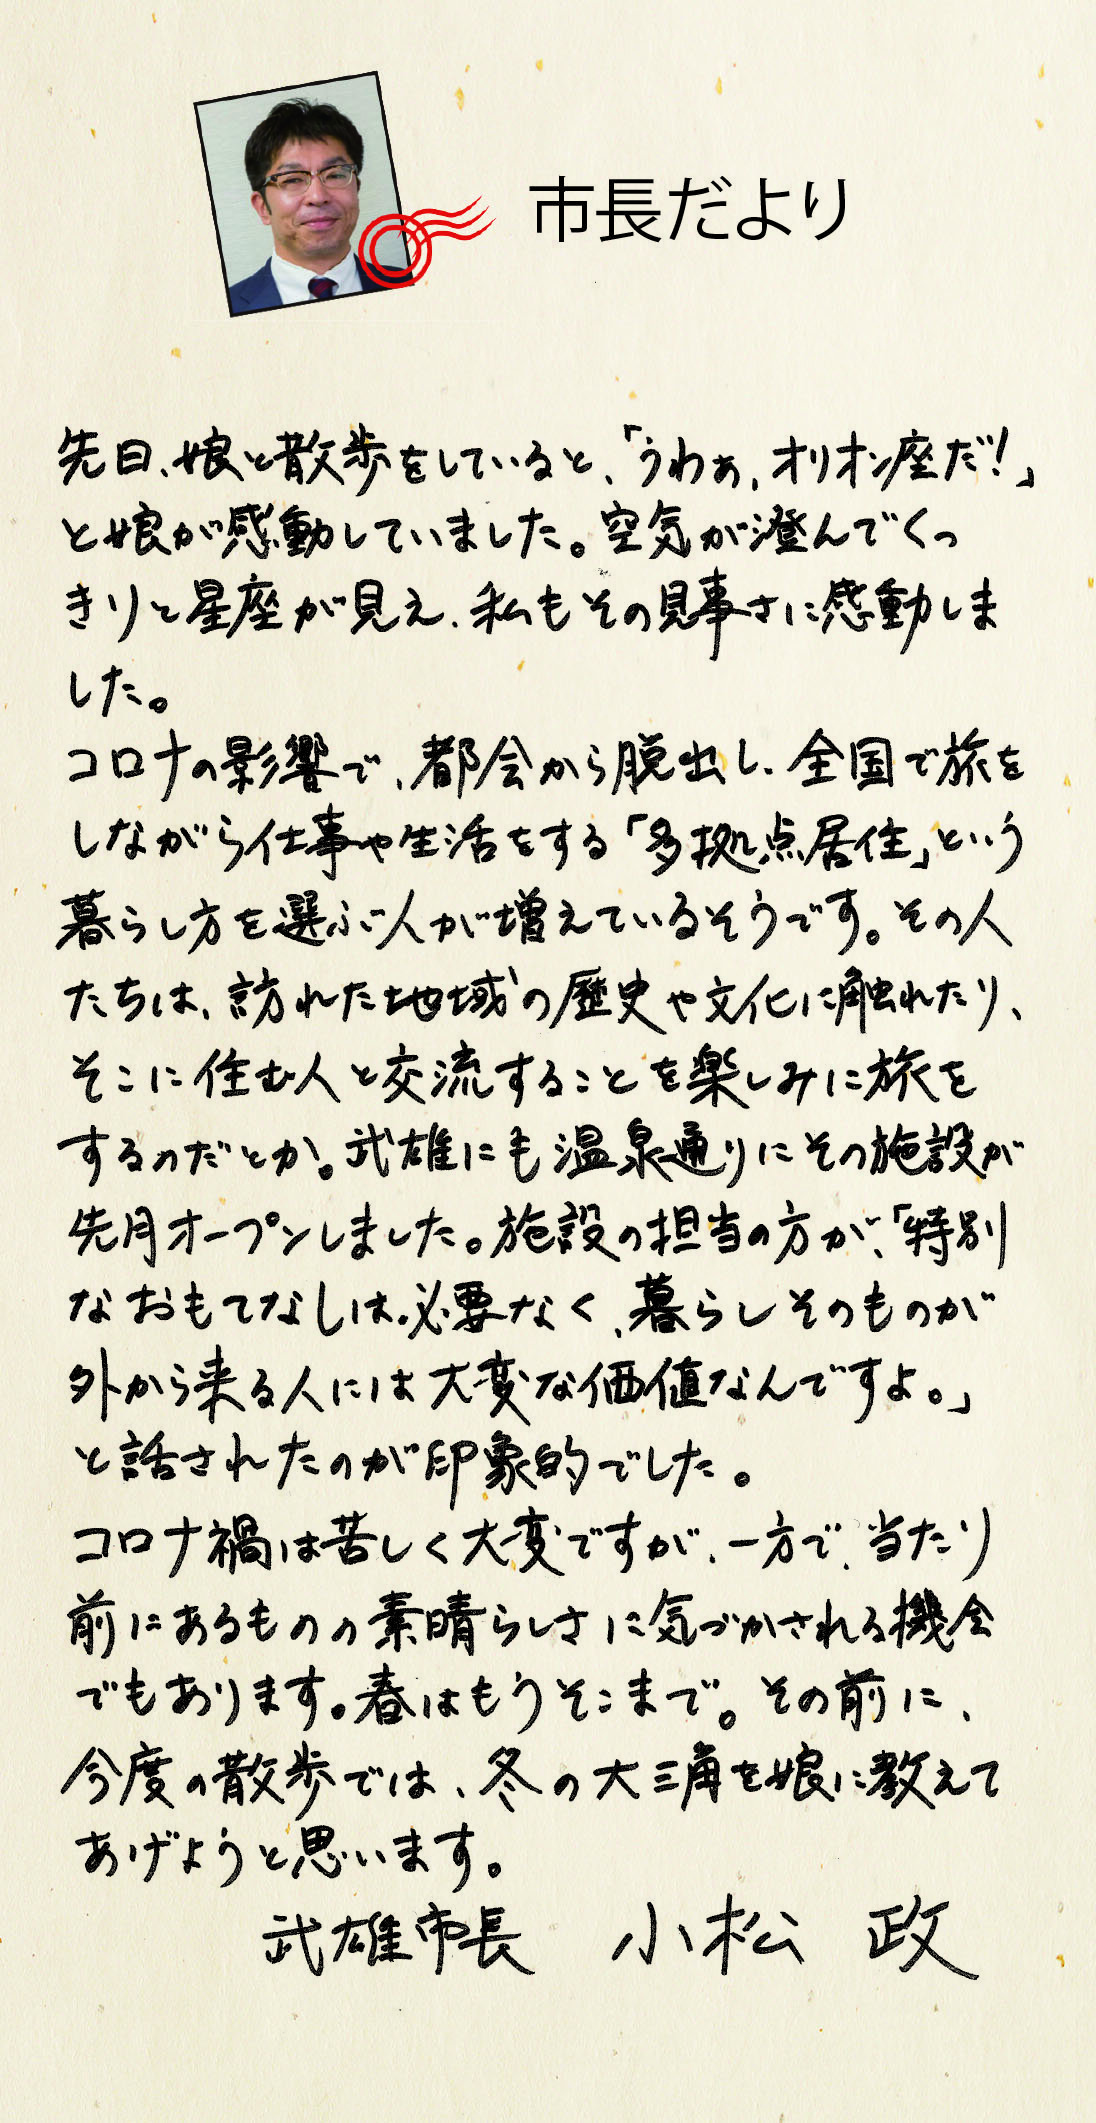 市長だより
先日、娘と散歩をしていると、「うわぁ、オリオン座だ!」
と娘が感動していました。空気が澄んでくっ
きりと星座が見え、私もその見事さに感動しま
した。
コロナの影響で、都会から脱出し、全国で旅を
しながら仕事や生活をする「多拠点居住」という
暮らし方を選ぶ人が増えているそうです。その人
たちは、訪れた地域の歴史や文化に触れたり、
そこに住む人と交流することを楽しみに旅を
するのだとか。武雄にも温泉通りにその施設が
先月オープンしました。施設の担当の方が、「特別
なおもてなしは必要なく、暮らしそのものが
外から来る人には大変な価値なんですよ。」
と話されたのが印象的でした。
コロナ禍は苦しく大変ですが、一方で、当たり
前にあるものの素晴らしさに気づかされる機会
でもあります。春はもうそこまで。その前に、
今度の散歩では、冬の大三角を娘に教えて
あげようと思います。
武雄市長 小松 政